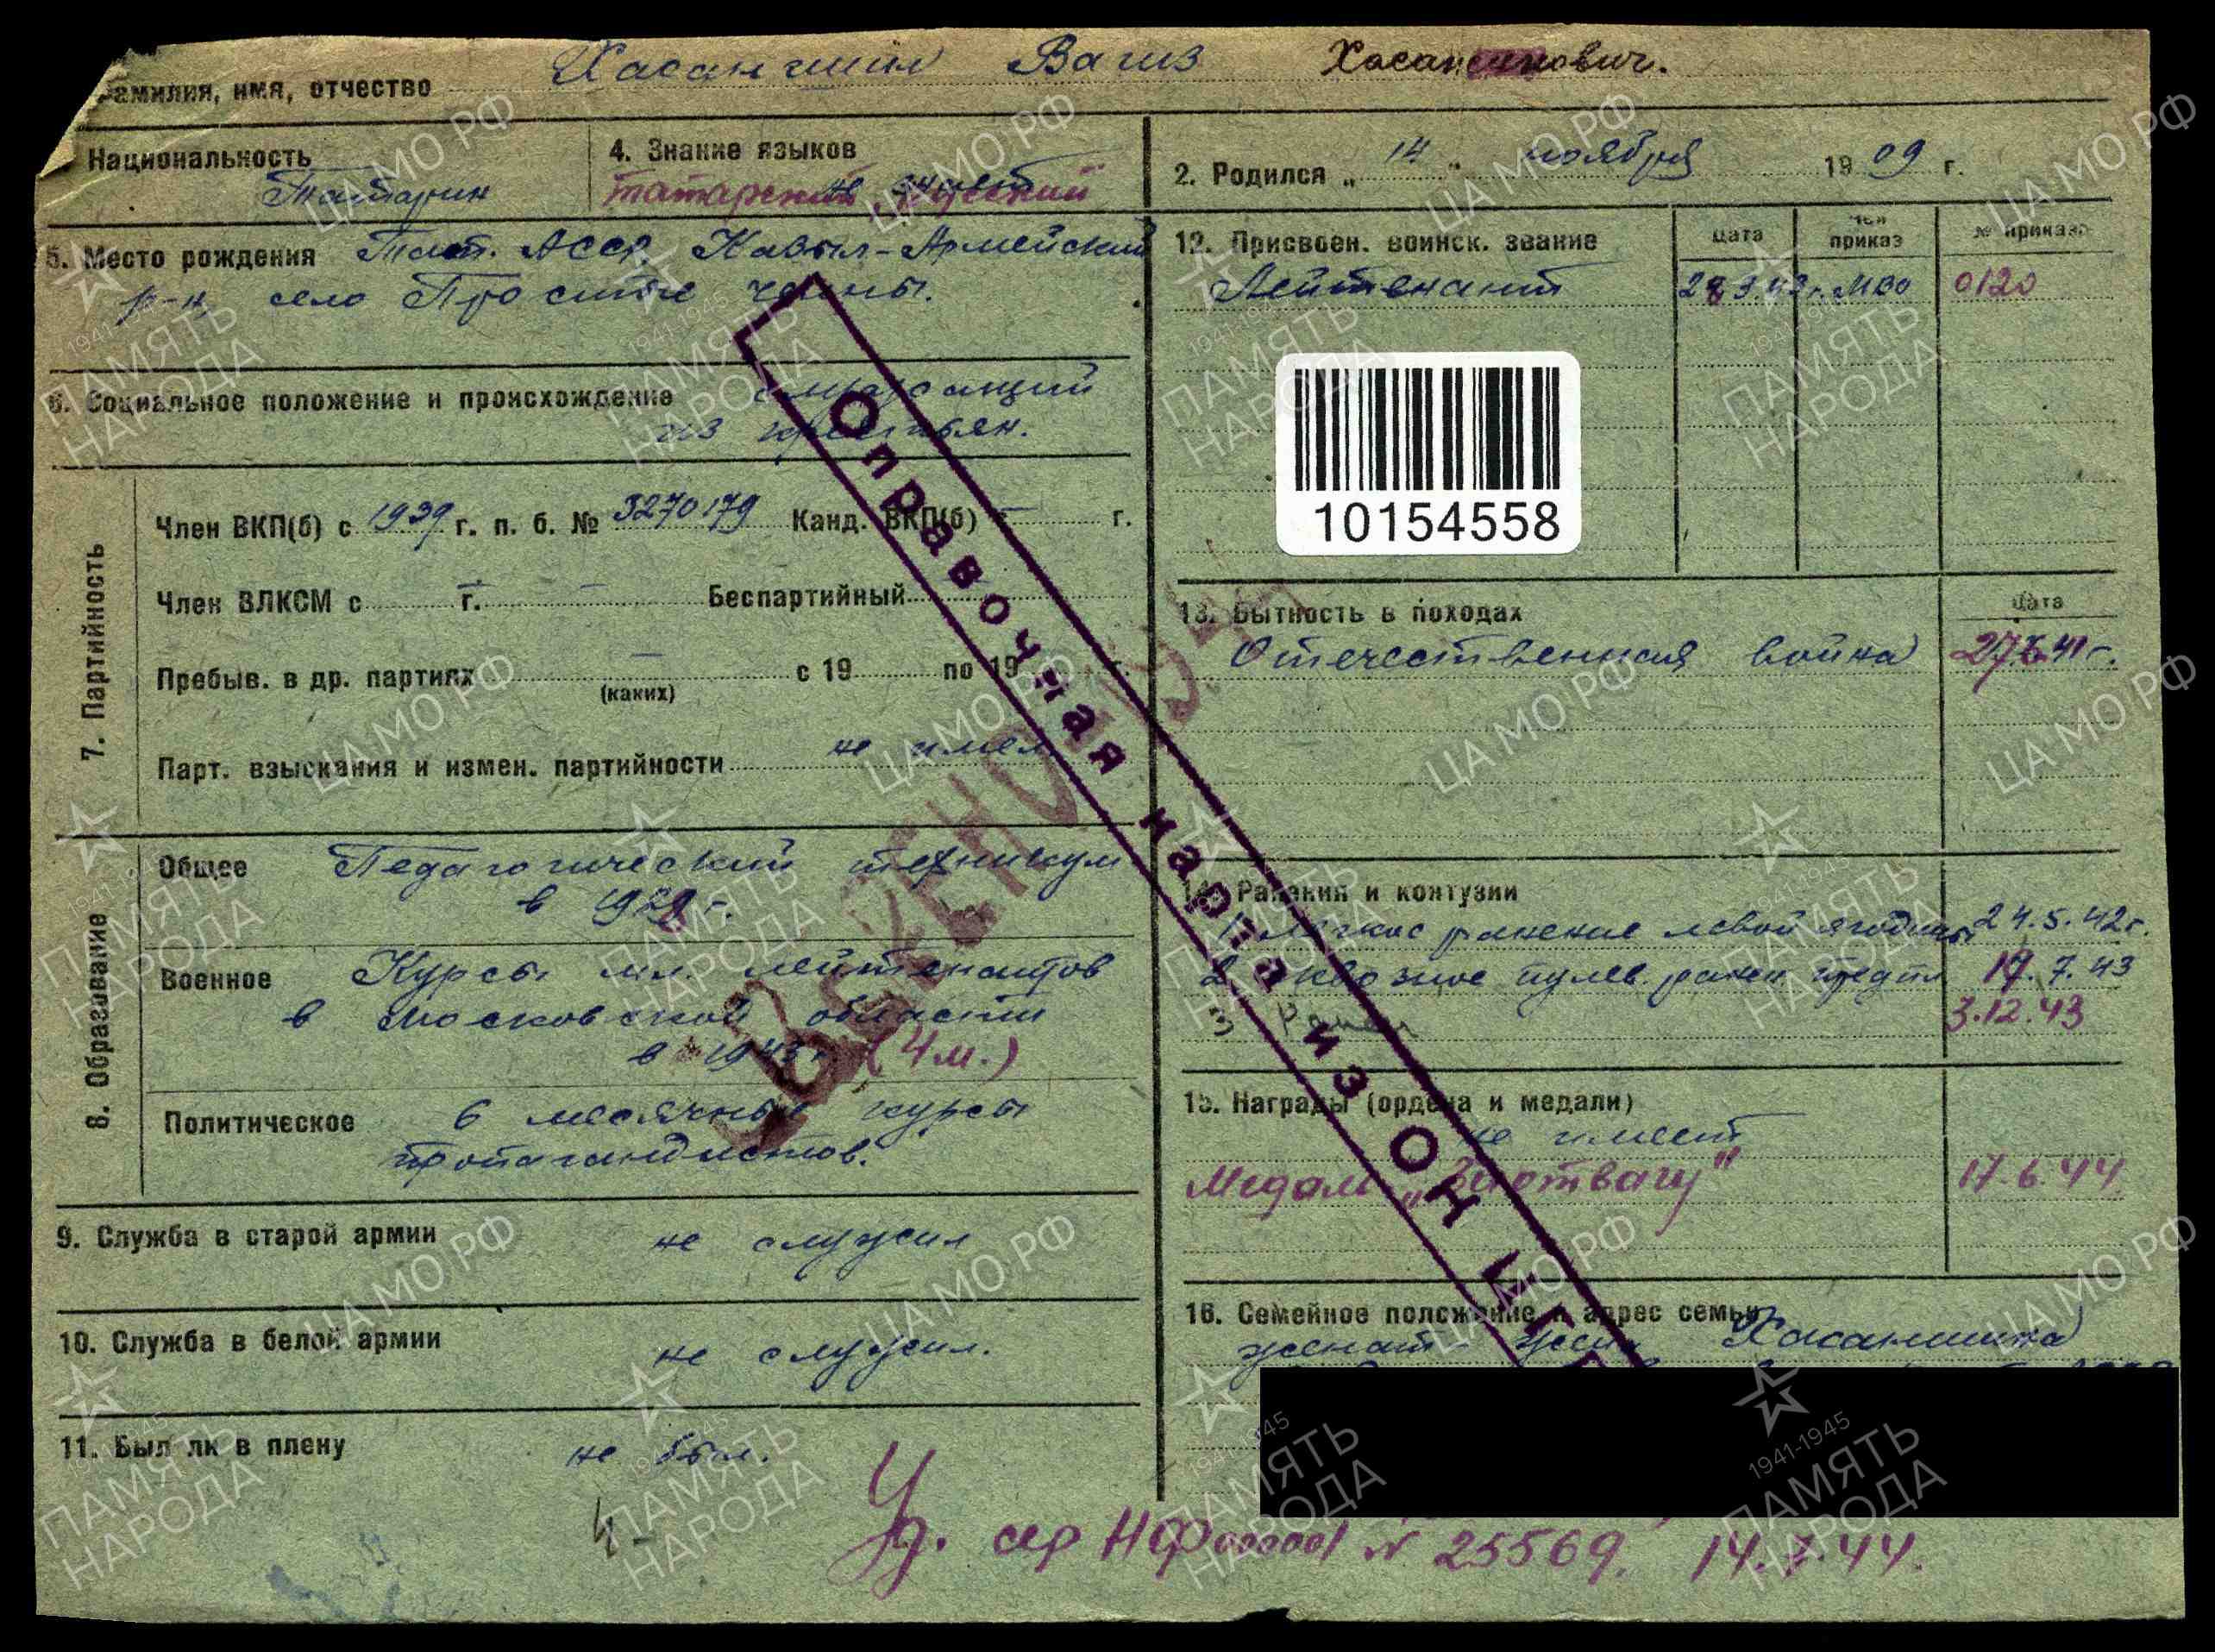 Фамилия, имя, отчество Хасаншин Вагиз Хасаншинович.
Национальность Татарин
4. Знание языков
татарский, русский
2. Родился „ 14 " ноября 1909 г.
5. Место рождения Тат. АССР, Кзыл-Армейский
р-н, село Простые челны.
6. Социальное положение и происхождение служащий
из крестьян.
7. Партийность
Член ВКП(б) с 1939 г. п. б. № 3270179 Канд. ВКП(б) г.
Член ВЛКСМ с г. Беспартийный
Пребыв. в др. партиях с 19 по 19 г.
(каких)
Парт. взыскания и измен. партийности не имел
8. Образование
Общее Педагогический техникум
в 1928 г.
Военное Курсы мл. лейтенантов
в Московской области
в 1943 г. (4 м.)
Политическое 6 месячные курсы
пропагандистов.
9. Служба в старой армии не служил
10. Служба в белой армии не служил.
11. Был ли в плену не был.
12. Присвоен. воинск. звание Дата Чей приказ № приказа
Лейтенант МВО 0120
10154558
13. Бытность в походах Дата
Отечественная война
14. Ранения и контузии
1. Легкое ранение левой ягодицы 24.5.42г.
2. Сквозное пулев. ранен. 17.7.43
3 Ранен 3.12.43
15. Награды (ордена и медали)
не имеет
Медаль „За отвагу" 17.6.44
16. Семейное положение и адрес семьи
женат жена Хасаншина
Уд. сер НФ 000001 № 25569. 14.7.44.
Справочная карта из ОН
ЦА МО РФ
1941-1945
ПАМЯТЬ
НАРОДА